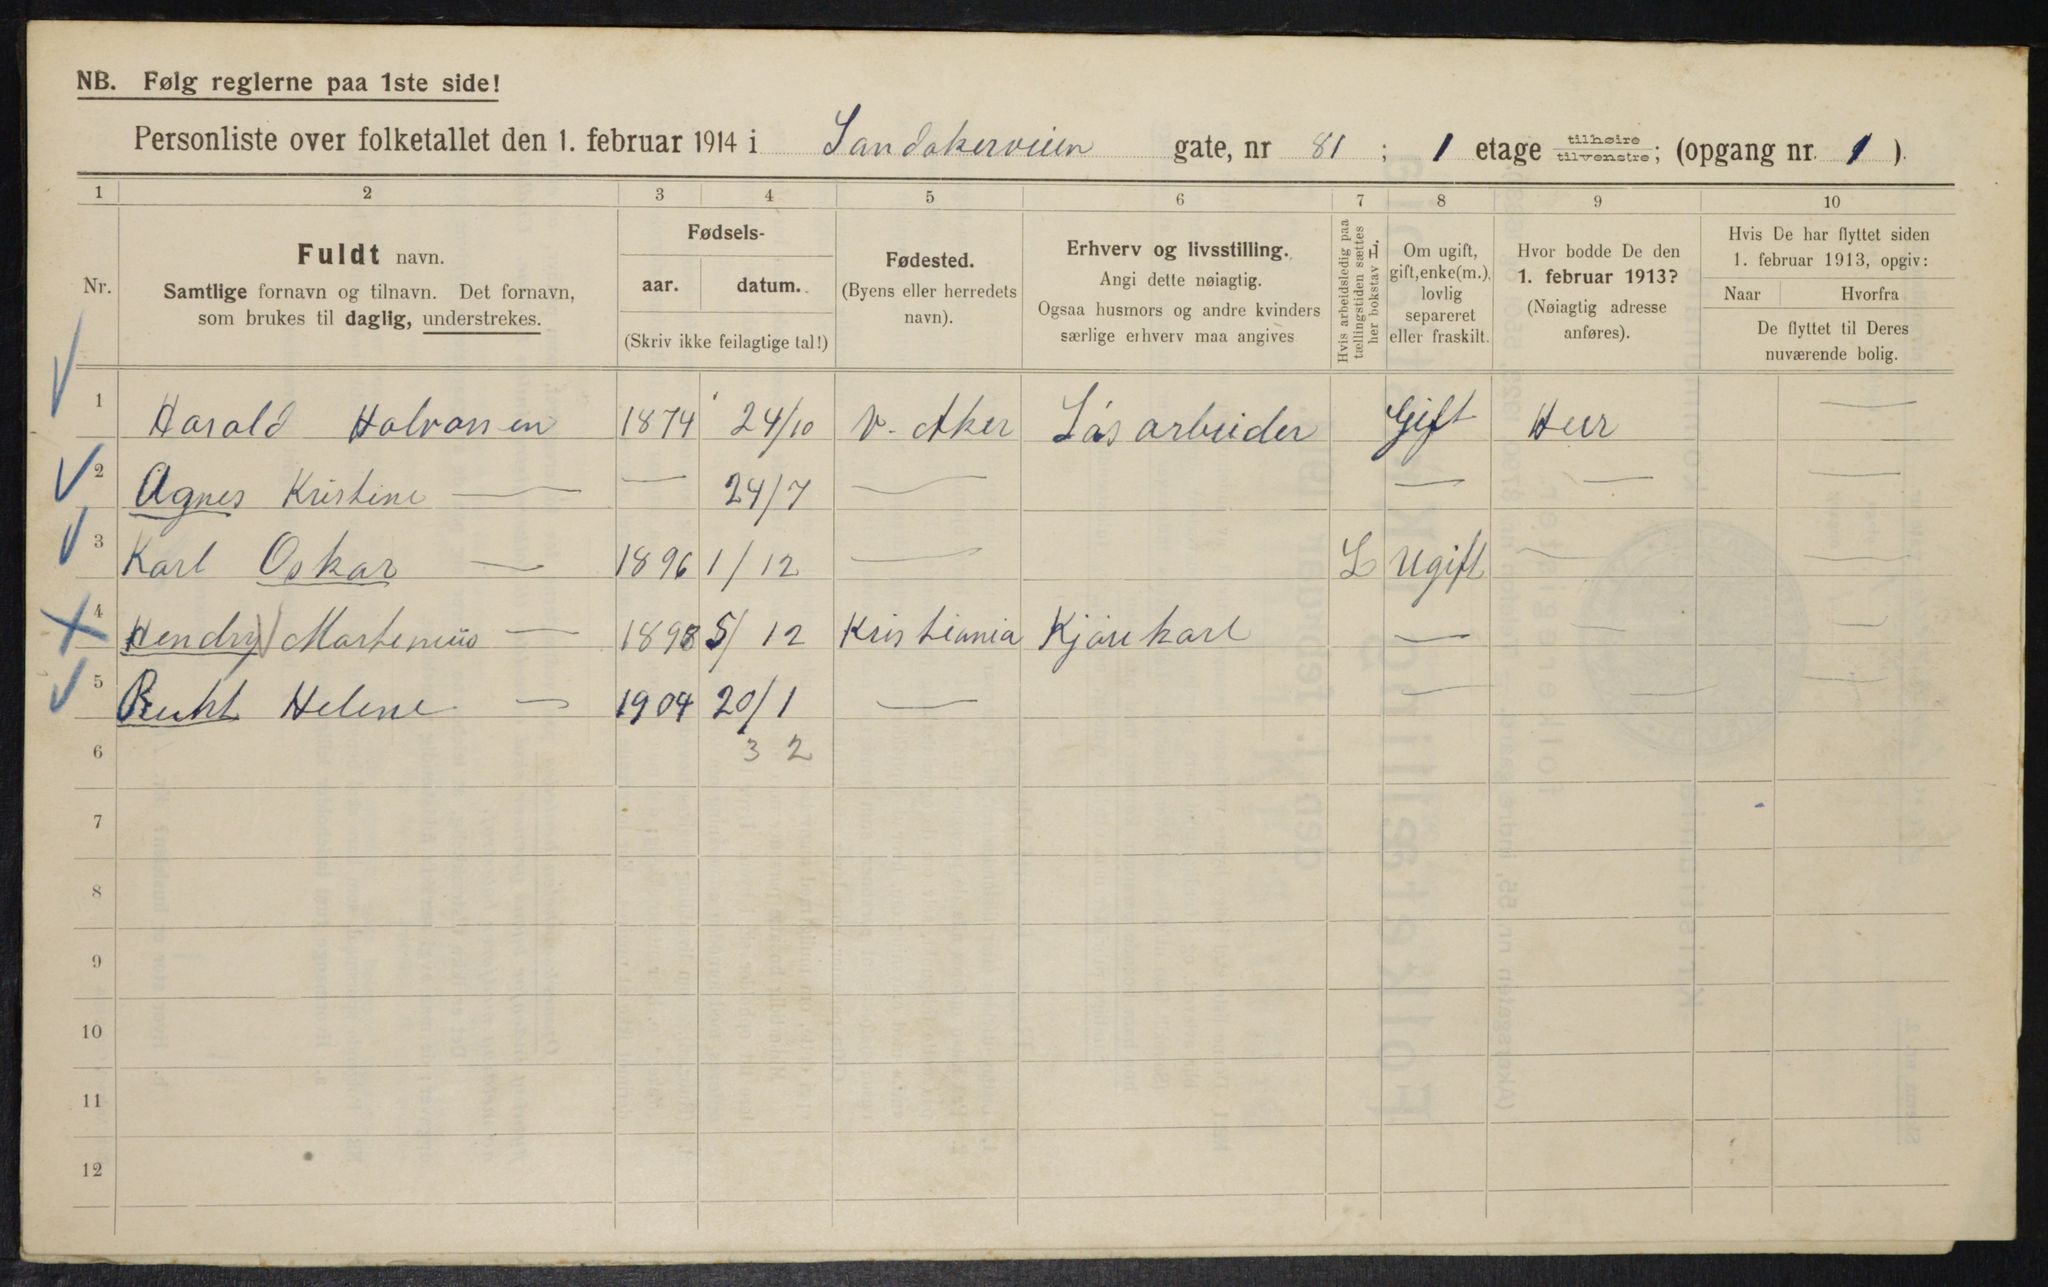 NB. Følg reglerne paa 1ste side!
Personliste over folketallet den 1. februar 1914 i Sandakerveien gate, nr 81 ; 1 etage tilhøire tilvenstre; (opgang nr. 1 ).
1 2 3 4 5 6 7 8 9 10
Nr.
Fuldt navn.
Samtlige fornavn og tilnavn. Det fornavn,
som brukes til daglig, understrekes.
Fødsels-
aar. datum.
(Skriv ikke feilagtige tal!)
Fødested.
(Byens eller herredets
navn).
Erhverv og livsstilling.
Angi dette nøiagtig.
Ogsaa husmors og andre kvinders
særlige erhverv maa angives
Hvis arbeidsledig paa
tællingstiden sættes
her bokstav L.
Om ugift,
gift, enke(m.),
lovlig
separeret
eller fraskilt.
Hvor bodde De den
1. februar 1913?
(Nøiagtig adresse
anføres).
Hvis De har flyttet siden
1. februar 1913, opgiv:
Naar Hvorfra
De flyttet til Deres
nuværende bolig.
1 Harald Halvorsen 1874 24/10 V. Aker Løsarbeider Gift Heer —
2 Agnes Kristine — — 24/7 — — — —
3 Karl Oskar — 1896 1/12 — L Ugift — —
4 Hendry Martenius — 1898 5/12 Kristiania Kjørekarl — — —
5 Helene — 1904 20/1 — — — —
6 3 2
7
8
9
10
11
12